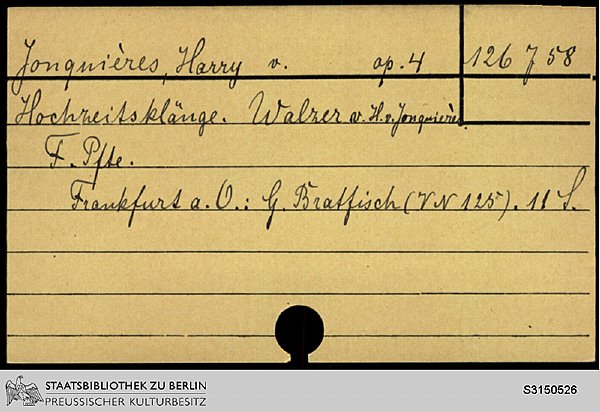 Jonquières, Harry v. op. 4 126 758
Hochzeitsklänge. Walzer v. H. v. Jonquières.
F. Pfte.
Frankfurt a. O.: G. Bratfisch (VN 125). 11 S.
STAATSBIBLIOTHEK ZU BERLIN
PREUSSISCHER KULTURBESITZ
S3150526